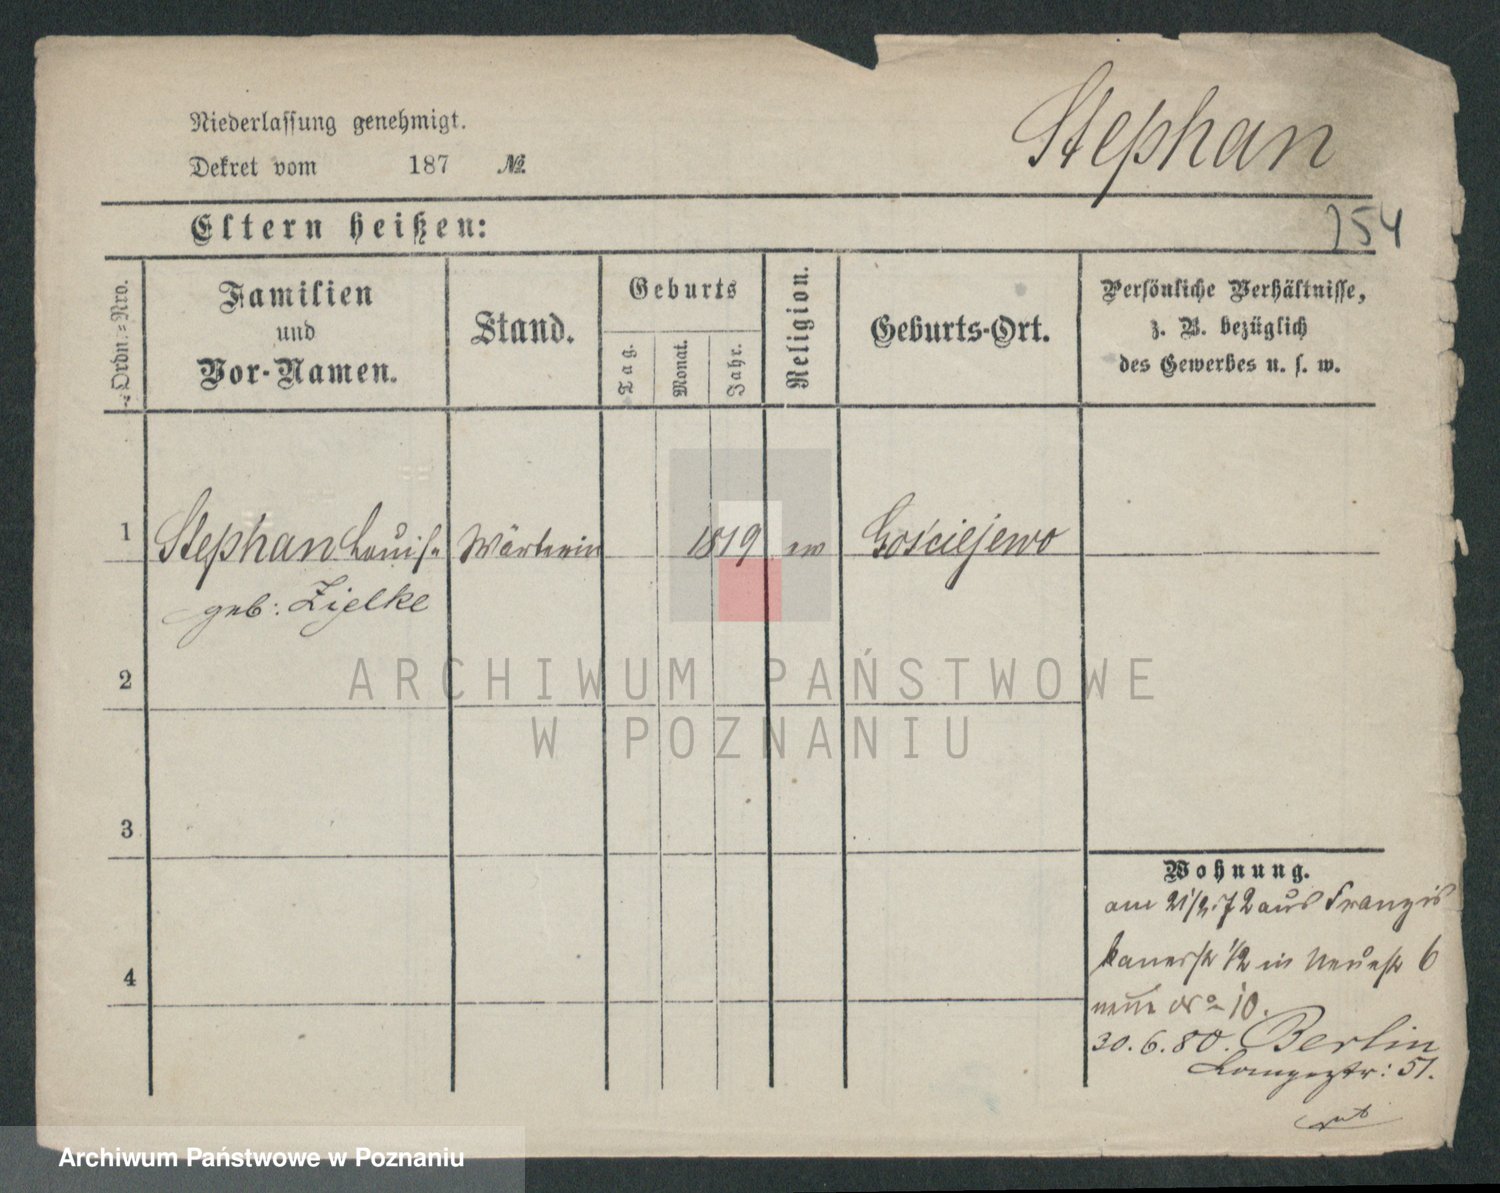 Niederlassung genehmigt.
Stephan
Dekret vom 187 №
Eltern heißen:
254
Ordn.-Nro.
Familien
und
Vor-Namen.
Stand.
Geburts
Tag.
Monat.
Jahr.
Religion.
Geburts-Ort.
Persönliche Verhältnisse,
z. B. bezüglich
des Gewerbes u. s. w.
1 Stephan Louise Wärterin 1819 ev Gościejewo
geb: Zielke
2
3
4
Wohnung.
am 21/2.72 aus Franzis
kanerstr 1/2 in Neuestr 6
neue No 10.
30.6.80. Berlin
Langestr: 51.
ARCHIWUM PAŃSTWOWE
W POZNANIU
Archiwum Państwowe w Poznaniu